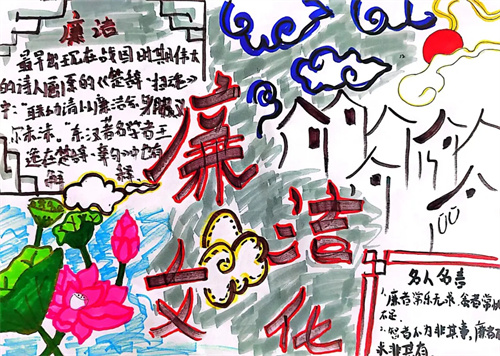 廉洁
最早出现在战国时期伟大
的诗人屈原的《楚辞·招魂》
中："朕幼清以廉洁兮，身服义
尔未沫。东汉著名学者王
逸在楚辞·章句中也有
解释
廉洁
文化
名人名言
1.廉者常乐无求，贪者常忧
不足。
2.忍者不为非其事，廉者不
求非其有